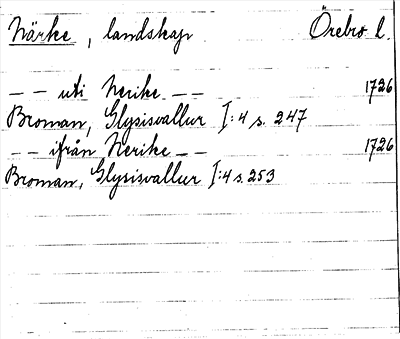 Närke, landskap Örebro l.
-- uti Nerike -- 1726
Broman, Glysisvallur I:4 s. 247
-- ifrån Nerike -- 1726
Broman, Glysisvallur I:4 s. 253